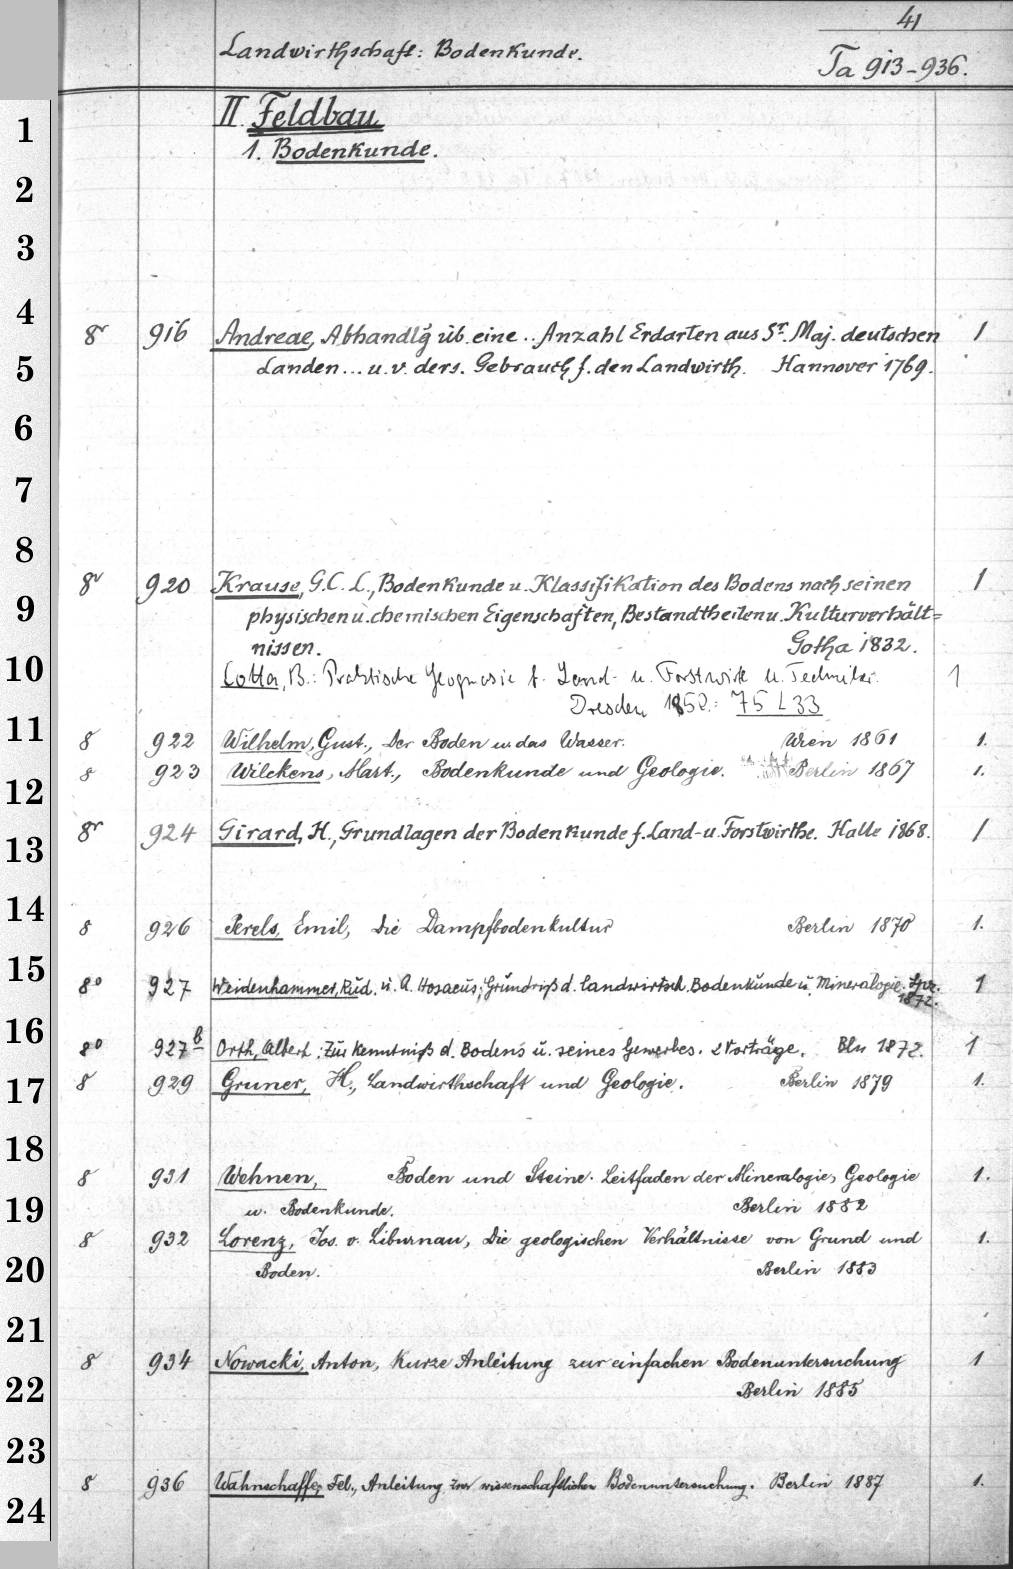 41
Landwirthschaft: Bodenkunde.
Ta 913-936.
II. Feldbau
1. Bodenkunde.
1
2
3
4
8r 916 Andreae, Abhandlg üb. eine .. Anzahl Erdarten aus Sr. Maj. deutschen 1
5 Landen... u. v. ders. Gebrauch f. den Landwirth. Hannover 1769.
6
7
8
8v 920 Krause, G.C.L., Bodenkunde u. Klassifikation des Bodens nach seinen 1
9 physischen u. chemischen Eigenschaften, Bestandtheilen u. Kulturverhält=
nissen. Gotha 1832.
10 Cotta, B.: Praktische Geognosie f. Land- u. Forstwirte u. Techniker. 1
Dresden 1852.: 75 L 33
11 8 922 Wilhelm, Gust., Der Boden u das Wasser. Wien 1861 1.
8 923 Wilckens, Mart., Bodenkunde und Geologie. Berlin 1867 1.
12
13 8r 924 Girard, H., Grundlagen der Bodenkunde f. Land- u. Forstwirthe. Halle 1868. 1
14 8 926 Perels, Emil, Die Dampfbodenkultur Berlin 1870 1.
15 8° 927 Weidenhammer, Rud. u. A. Hosaeus; Grundriß d. landwirtsch. Bodenkunde u. Mineralogie. Lpz. 1
1872.
16 8° 927b Orth, Albert: Zur Kenntniß d. Bodens u. seines Gewerbes. 2 Vorträge. Bln 1872. 1
17 8 929 Gruner, H., Landwirthschaft und Geologie. Berlin 1879 1.
18 8 931 Wehnen, Boden und Steine. Leitfaden der Mineralogie, Geologie 1.
19 u. Bodenkunde. Berlin 1882
8 932 Lorenz, Jos. v. Liburnau, Die geologischen Verhältnisse von Grund und 1.
20 Boden. Berlin 1883
21
8 934 Nowacki, Anton, Kurze Anleitung zur einfachen Bodenuntersuchung 1
22 Berlin 1885
23
8 936 Wahnschaffe, Fel., Anleitung zur wissenschaftlichen Bodenuntersuchung. Berlin 1887 1.
24